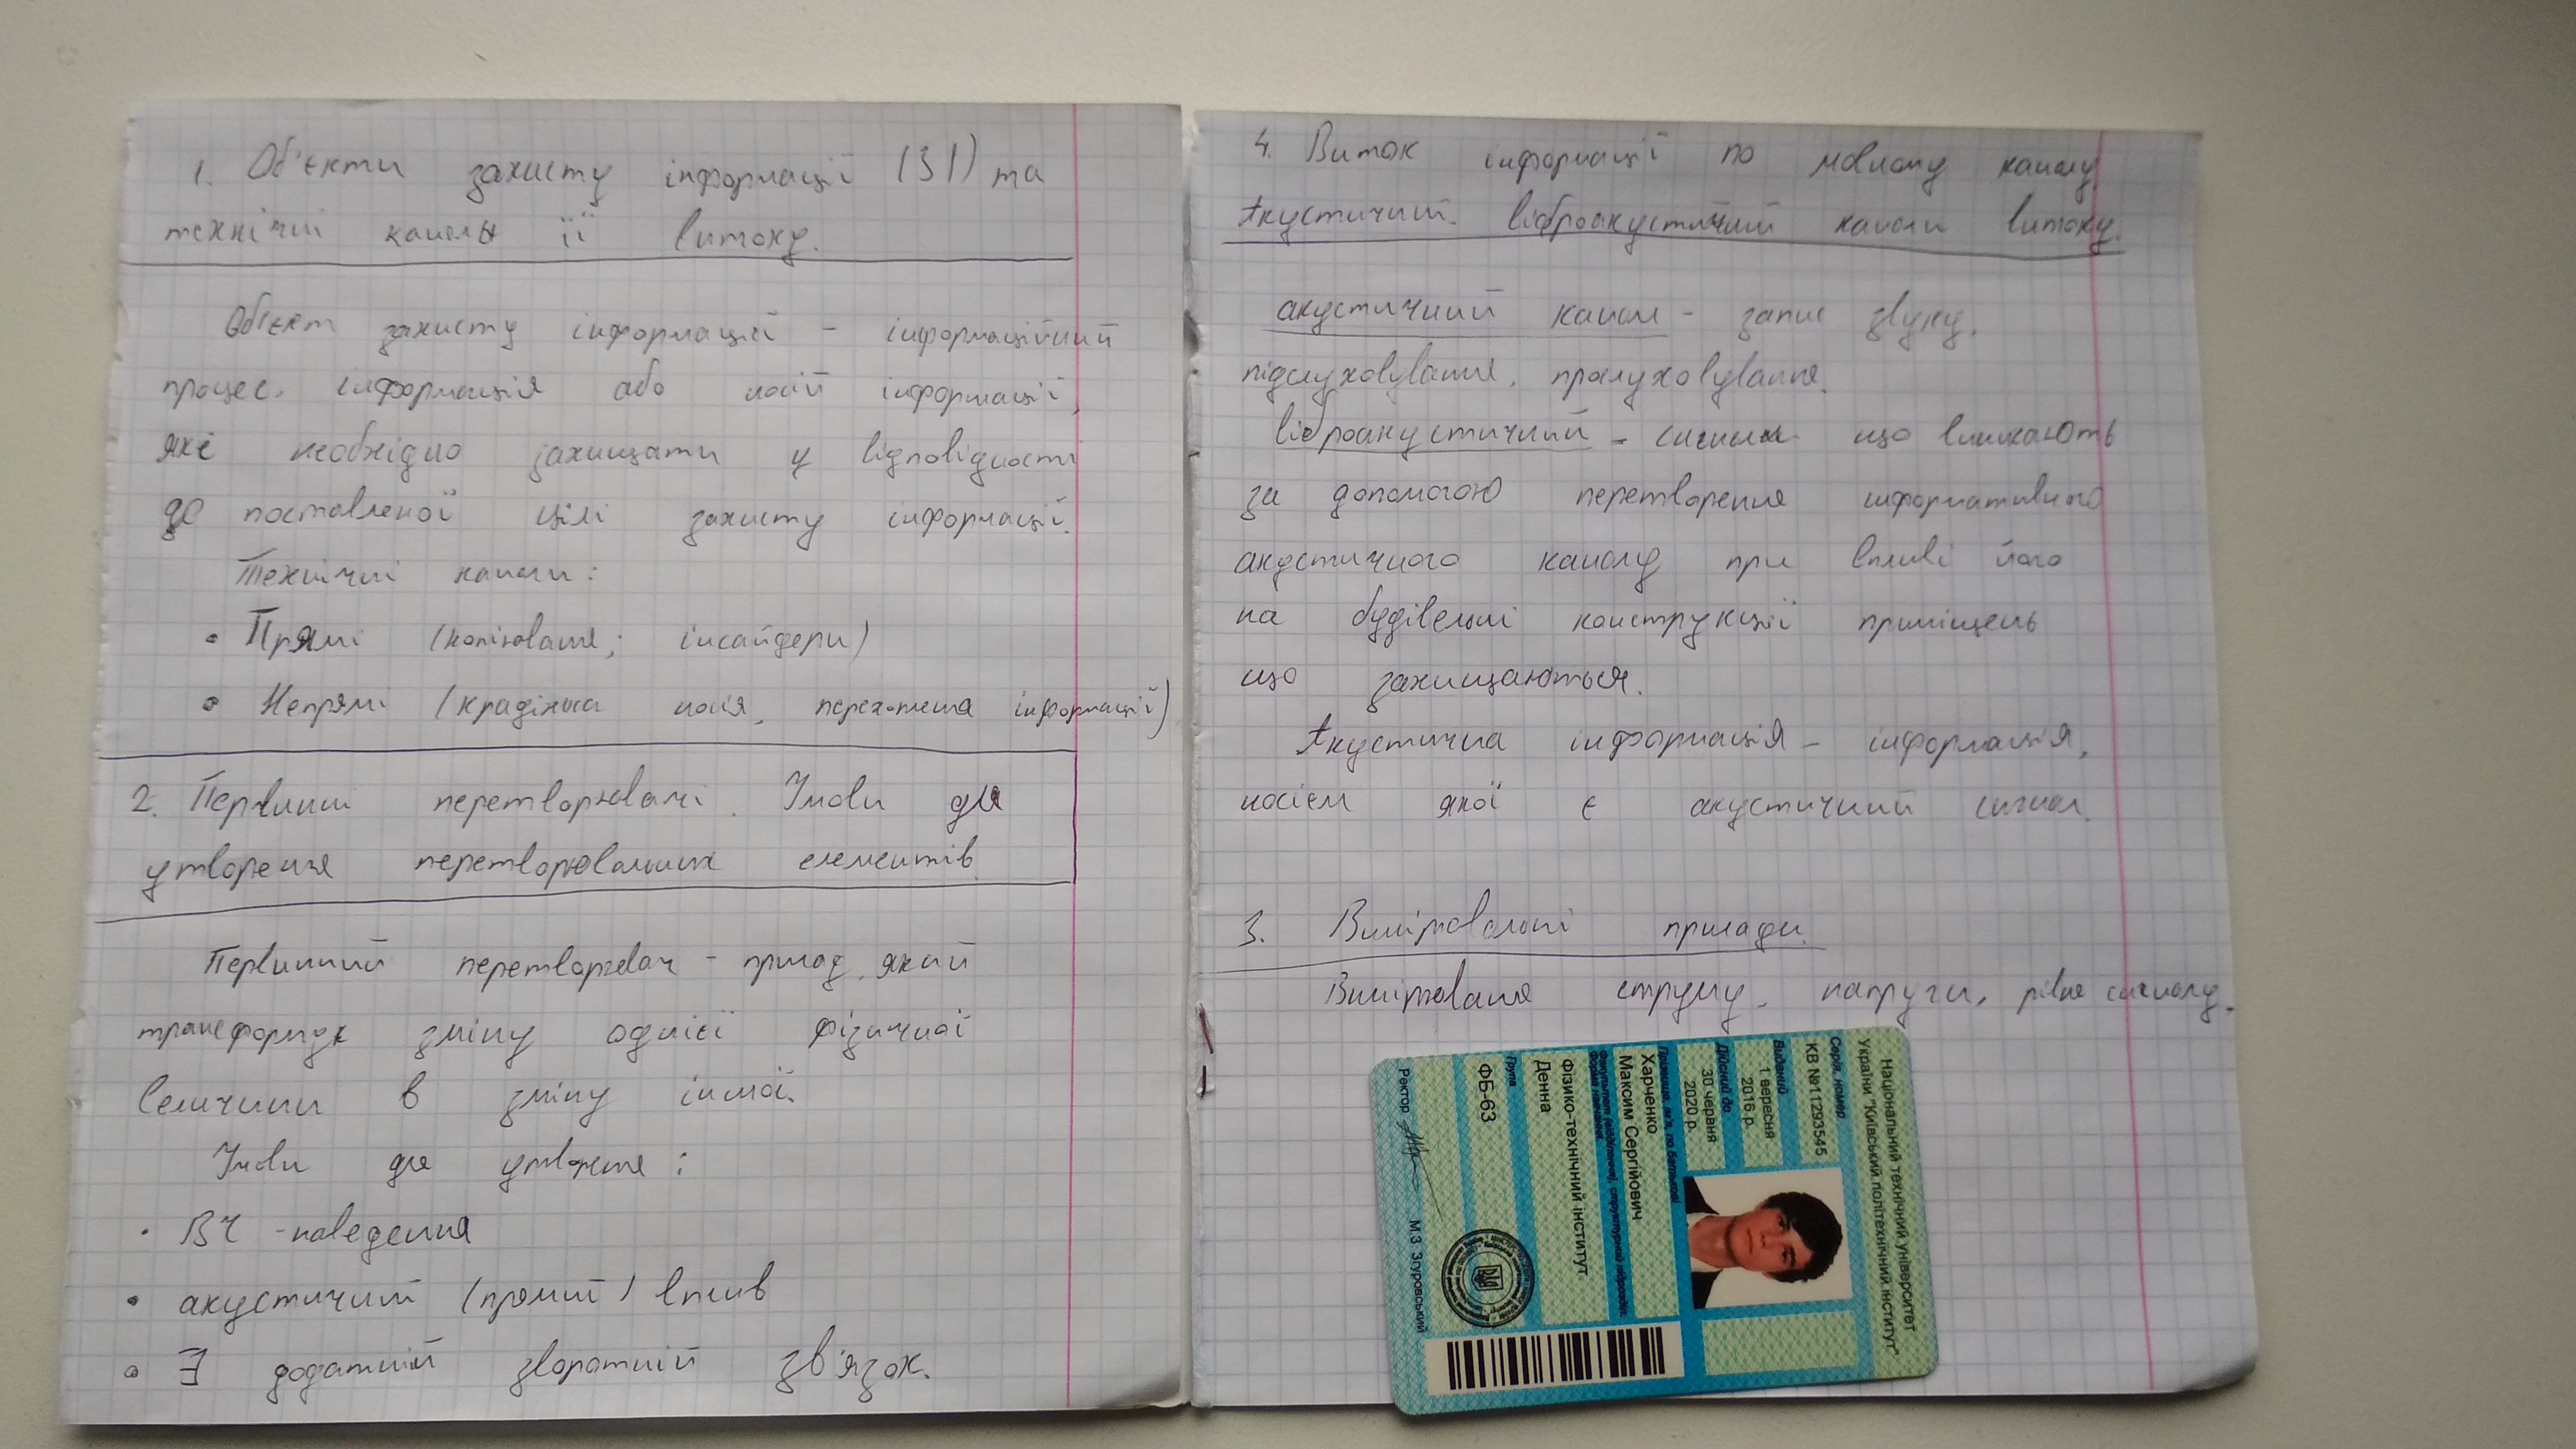 1. Об'єкти захисту інформації (ЗІ) та
технічні каналы її витоку.
Об'єкт захисту інформації - інформаційний
процес, інформація або носій інформації,
які необхідно захищати у відповідності
до поставленої цілі захисту інформації.
Технічні канали:
• Прямі (копіювання; інсайдери)
• Непрямі (крадіжка носія, перехоплення інформації)
2. Первинні перетворювачі. Умови для
утворення перетворювальних елементів.
Первинний перетворювач - прилад, який
трансформує зміну однієї фізичної
величини в зміну іншої.
Умови для утворення:
• ВЧ - наведення
• акустичний (прямий) вплив
• ∃ додатній зворотній зв'язок.
4. Виток інформації по мовному каналу.
Акустичний. віброакустичний канали витоку.
акустичний канал - запис звуку,
підслуховування, прослуховування.
віброакустичний - сигнали що виникають
за допомогою перетворення інформативного
акустичного каналу при впливі його
на будівельні конструкції приміщень
що захищаються.
Акустична інформація - інформація,
носієм якої є акустичний сигнал.
3. Вимірювальні прилади.
Вимірювання струму, напруги, рівня сигналу.
Національний технічний університет
України "Київський політехнічний інститут"
Серія, номер
КВ №11293545
Виданий
1 вересня
2016 р.
Дійсний до
30 червня
2020 р.
Прізвище, ім'я, по батькові
Харченко
Максим Сергійович
Факультет (відділення), структурний підрозділ,
форма навчання
Фізико-технічний інститут
Денна
Група
ФБ-63
Ректор М.З. Згуровський